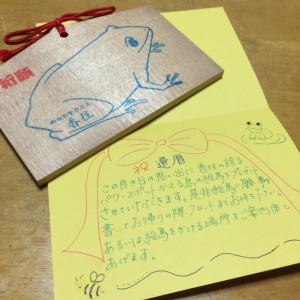 祈願
あなたをカエル
香住
祝 還暦
この良き日の思い出に 香住の誇る
パワースポットかえる島の絵馬をプレゼント
させていただきます。是非絵馬に願い事を
書いてお帰りの際フロントまでお持ち下さい。
あるいは絵馬をかける場所をご案内申し
あげます。